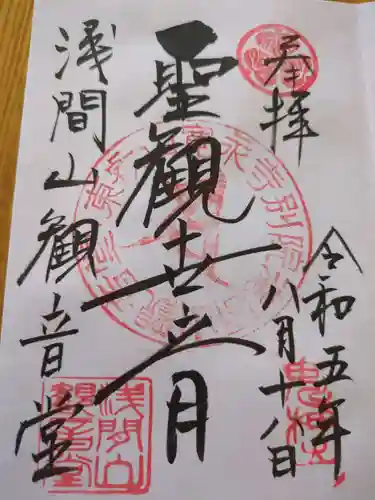 奉拝
令和五年
八月十八日
聖観世音
浅間山観音堂
浅間山
観音堂
鬼押